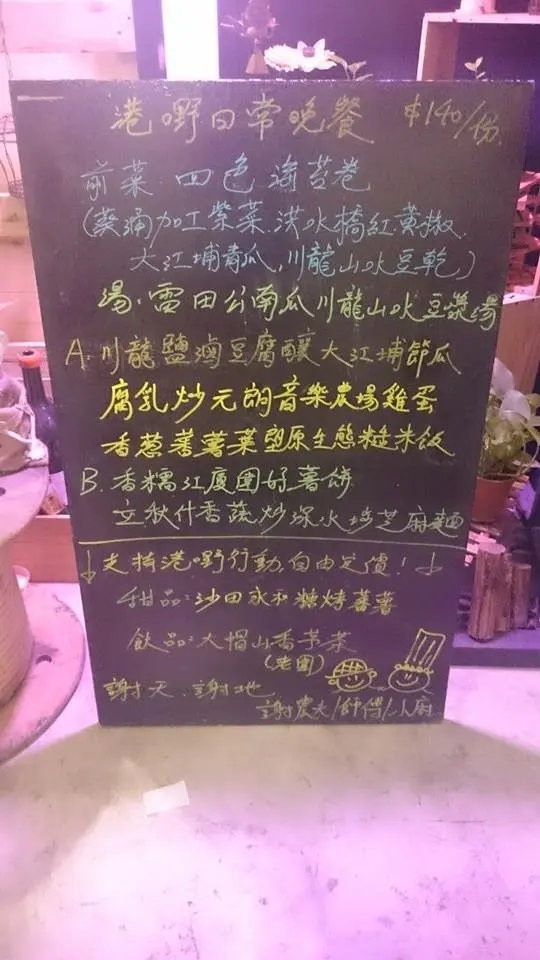 港嘢日常晚餐 $140/份
前菜:四色海苔卷
(葵涌加工紫菜.洪水橋紅黃椒.
大江埔青瓜,川龍山水豆乾)
湯:雷田公南瓜川龍山水豆漿湯
A.川龍鹽滷豆腐釀大江埔節瓜
腐乳炒元朗音樂農場雞蛋
香蔥蕃薯菜塱原生態糙米飯
B.香糯江廈圍好薯餅
立秋什香蔬炒深水埗芝麻麵
↓支持港嘢行動,自由定價!↓
甜品:沙田永和糖烤蕃薯
飲品:大帽山香茅菜
(老圍)
謝天.謝地
謝農夫/師傅/小廚